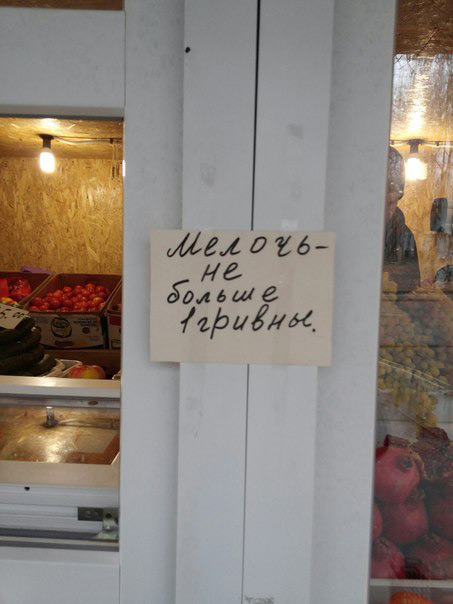 Мелочь-
не
больше
1 гривны.